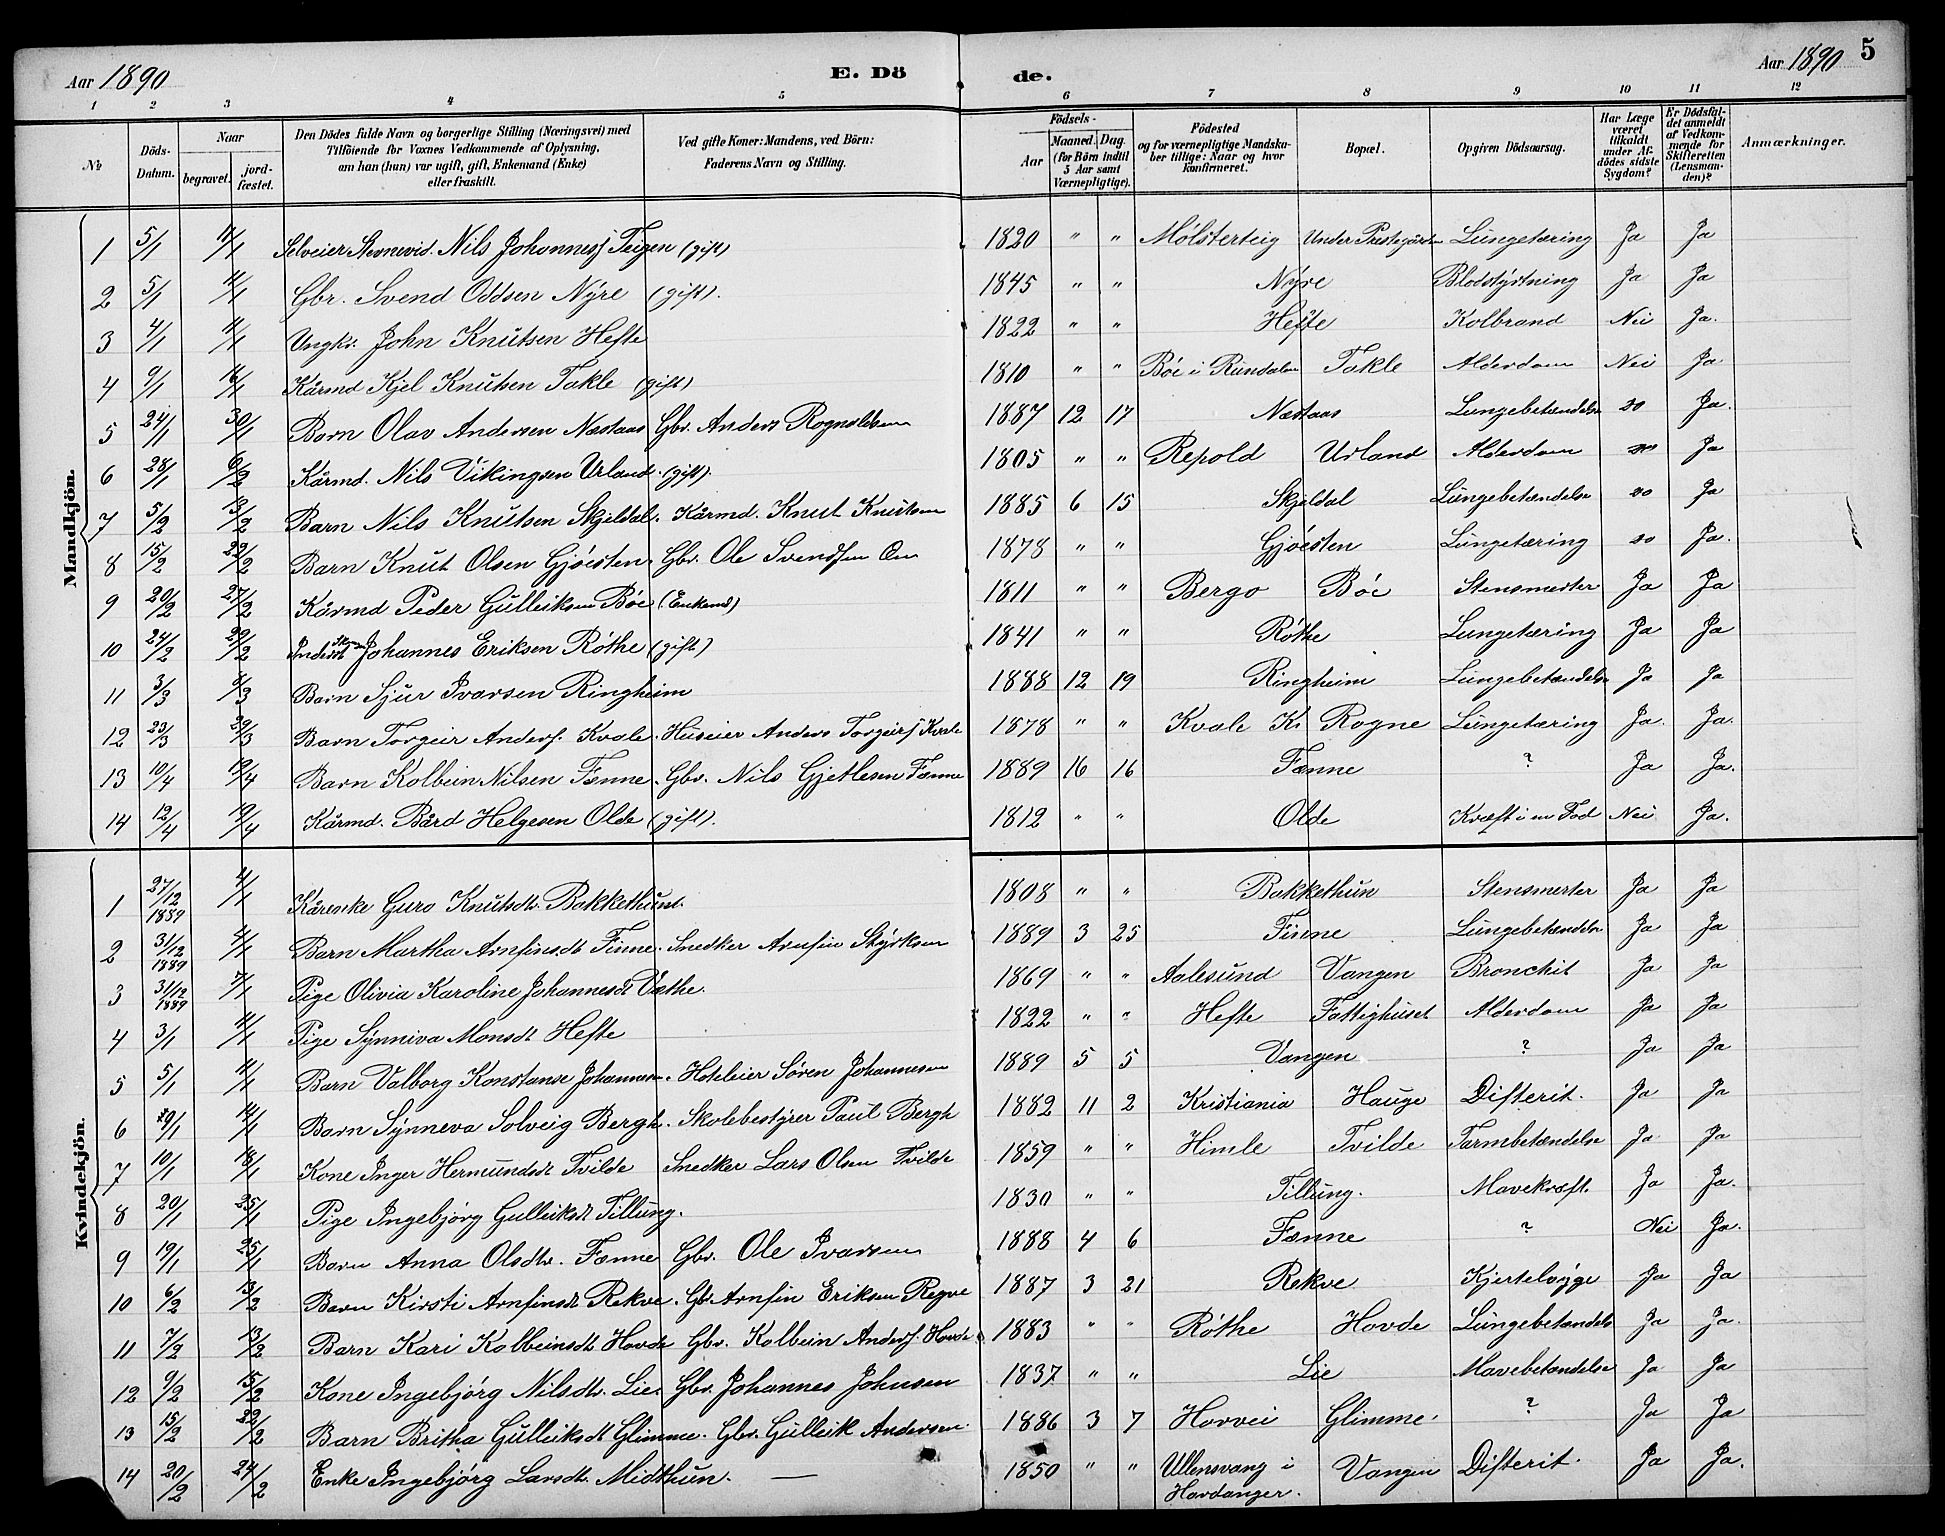 Aar 1890 E. Dö de. Aar 1890 5
1 2 3 4 5 6 7 8 9 10 11 12
№ Döds-Datum. Naar begravet. jord-fæstet. Den Dödes fulde Navn og borgerlige Stilling (Næringsvei) med Tilföiende for Voxnes Vedkommende af Oplysning, om han (hun) var ugift, gift, Enkemand (Enke) eller fraskilt. Ved gifte Koner: Mandens, ved Börn: Faderens Navn og Stilling. Födsels- Aar Maaned. Dag. (for Börn indtil 5 Aar samt Værnepligtige). Födested og for værnepligtige Mandska-ber tillige: Naar og hvor konfirmeret. Bopæl. Opgiven Dödsaarsag. Har Læge været tilkaldt under Af-dödes sidste Sygdom? Er Dödsfal-det anmeldt af Vedkom-mende for Skifteretten (Lensman-den)? Anmærkninger.
Mandkjön.
1 5/1 11/1 Selveier Stevnevid. Nils Johannesf Teigen (gift) 1820 " " Mølsterteig Under Prestegården Lungetæring Ja Ja
2 5/1 11/1 Gbr. Svend Oddsen Nyre (gift). 1845 " " Nyre Blodstyrtning Ja Ja
3 4/1 11/1 Ungkr. John Knutsen Hefte 1822 " " Hefte Kolbrand Nei Ja.
4 9/1 16/1 Kårmd Kjel Knutsen Takle (gift) 1810 " " Bøe i Rundalen Takle Alderdom Nei Ja
5 24/1 30/1 Barn Olav Andersen Næstaas Gbr. Anders Rognaldsen 1887 12 17 Næstaas Lungebetændelse do Ja.
6 28/1 6/2 Kårmd. Nils Vikingsen Urland. (gift). 1805 " " Repold Urland Alderdom do Ja
7 5/2 13/2 Barn Nils Knutsen Skjeldal. Kårmd. Knut Knutsen 1885 6 15 Skjeldal Lungebetændelse do Ja
8 15/2 22/2 Barn Knut Olsen Gjøesten. Gbr. Ole Svendsen 1878 " " Gjøesten Lungetæring do Ja.
9 20/2 27/2 Kårmd Peder Gulleiksen Bøe (Enkemd) 1811 " " Bergo Bøe Stensmerter Ja Ja
10 24/2 29/2 Inderst Johannes Eriksen Røthe (gift) 1841 " " Røthe Lungetæring Ja Ja
11 3/3 /3 Barn Sjur Ivarsen Ringheim 1888 12 19 Ringheim Lungebetændelse Ja Ja
12 23/3 29/3 Barn Torgeir Andersf. Kvale. Huseier Anders Torgeirsf Kvale 1878 " " Kvale Rogne Lungetæring Ja. Ja.
13 10/4 19/4 Barn Kolbein Nilsen Fenne. Gbr. Nils Gjetlesen Fenne 1889 16 16 Fenne ? Ja Ja.
14 12/4 19/4 Kårmd. Bård Helgesen Olde (gift). 1812 " " Olde Kræft i en Fod Nei Ja.
Kvindekjön.
1 27/12 1889 4/1 Kårenke Guro Knutsdtr. Bakkethun. 1808 " " Bakkethun Stensmerter Ja Ja
2 31/12 1889 4/1 Barn Martha Arnfinsdt Finne. Snedker Arnfin Styrksen 1889 3 25 Finne Lungebetændelse Ja Ja
3 31/12 1889 7/1 Pige Olivia Karoline Johannesdt Væthe. 1869 " " Aalesund Vangen Bronchit Ja Ja
4 3/1 11/1 Pige Synniva Monsdt Hefte 1822 " " Hefte Fattighuset Alderdom Ja Ja
5 5/1 11/1 Barn Valborg Konstanse Johannesen. Hoteleier Søren Johannesen 1889 5 5 Vangen. ? Ja Ja
6 10/1 14/1 Barn Synneva Solveig Bergh. Skolebestyrer Paul Bergh 1882 11 2 Kristiania Hauge Difterit. Ja Ja
7 10/1 18/1 Kone Inger Hermundsdt Tvilde Snedker Lars Olsen Tvilde 1859 " " Himle Tvilde Tarmbetændelse Ja Ja
8 20/1 25/1 Pige Ingebjørg Gulleiksdt Tillung. 1830 " " Tillung. Mavekræft. Ja Ja.
9 19/1 25/1 Barn Anna Olsdtr. Fenne Gbr. Ole Ivarsen 1888 4 6 Fenne ? Nei Ja.
10 6/2 13/2 Barn Kirsti Arnfinsdt Rekve. Gbr. Arnfin Eriksen Reqve 1887 3 21 Rekve Kjertelsyge Ja Ja
11 7/2 13/2 Barn Kari Kolbeinsdt Hovde Gbr. Kolbein Andersf. Hovde. 1883 " " Røthe Hovde Lungebetændels Ja Ja.
12 9/2 15/2 Kone Ingebjørg Nilsdtr. Lie. Gbr. Johannes Johnsen 1837 " " Lie Mavebetændelse Ja Ja
13 15/2 22/2 Barn Britha Gulleiksdt Glimme. Gbr. Gulleik Andersen 1886 3 7 Horvei Glimme. ? Ja Ja
14 20/2 24/2 Enke Ingebjørg Larsdtr Midthun. — 1850 " " Ullensvang i Hardanger. Vangen Difterit. Ja Ja.